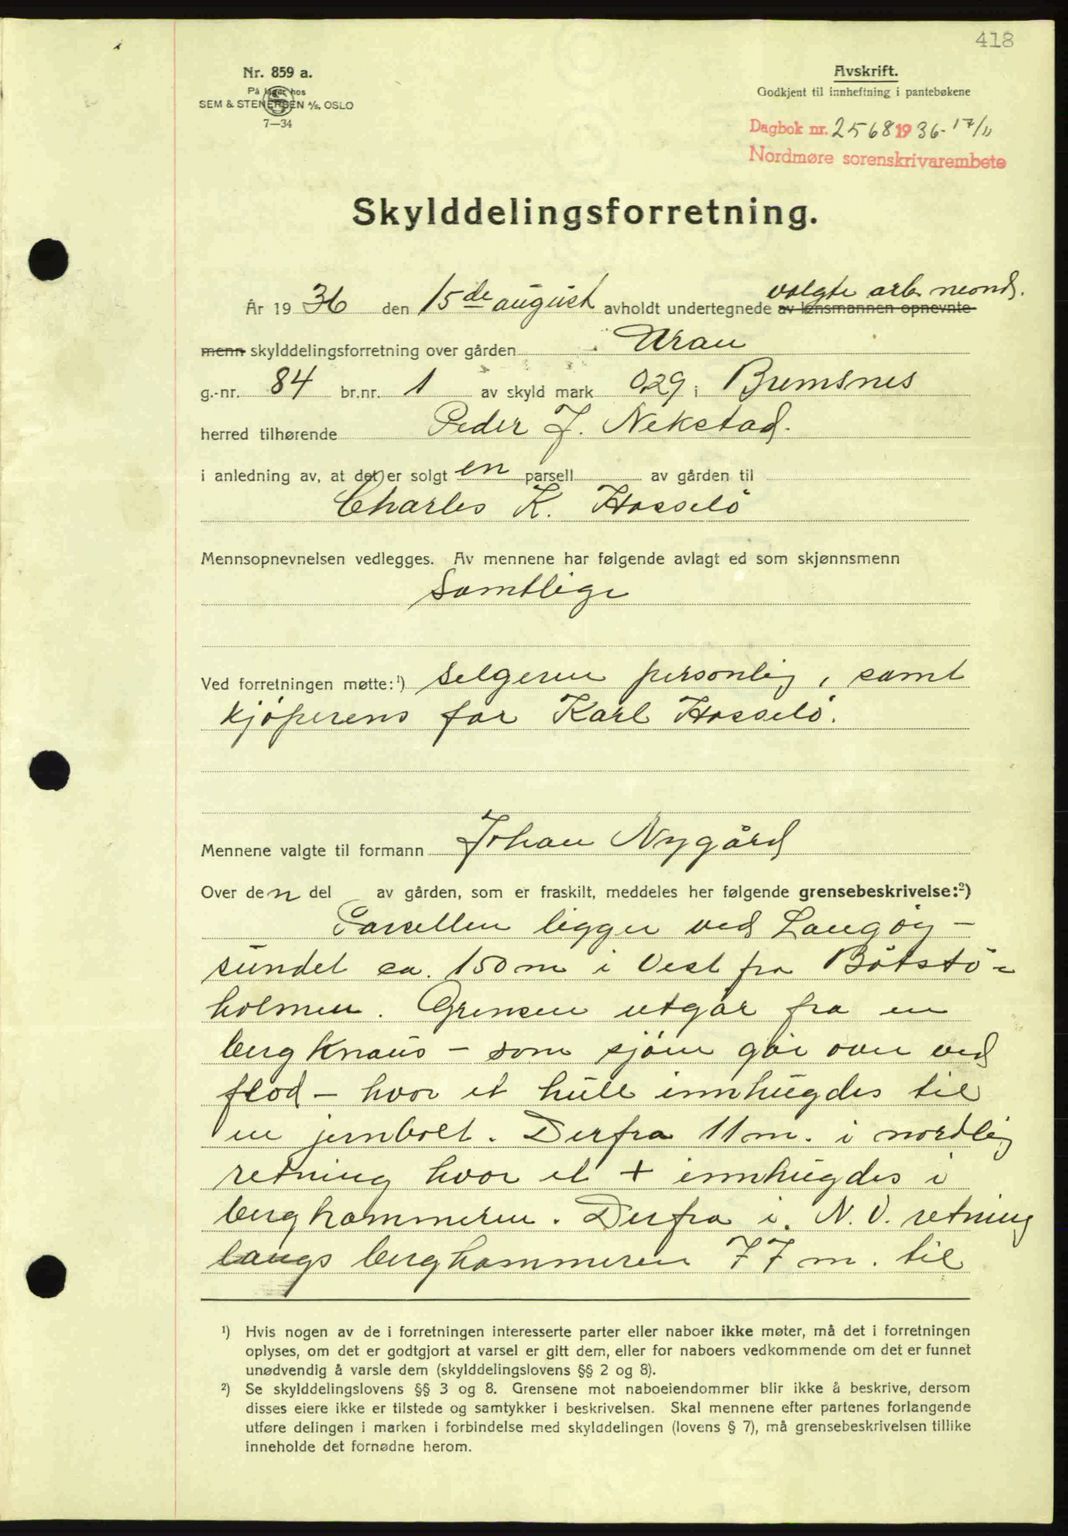 418
Nr. 859 a.
På lager hos
SEM & STENERSEN A/S, OSLO
7—34
Avskrift.
Godkjent til innheftning i pantebøkene
Dagbok nr. 2568 1936 - 17/11
Nordmøre sorenskrivarembete
Skylddelingsforretning.
valgte
År 1936 den 15de august avholdt undertegnede av lensmannen opnevnte
menn skylddelingsforretning over gården
g.-nr. 84 br.nr. 1 av skyld mark 0,29 i Bremsnes
herred tilhørende Peder J. Nekstad.
i anledning av, at det er solgt en parsell av gården til
Charles K. Hosselö
Mennsopnevnelsen vedlegges. Av mennene har følgende avlagt ed som skjønnsmenn
Samtlige
Ved forretningen møtte:¹) Selgeren personlig, samt
kjöperens far Karl Hosselö.
Mennene valgte til formann Johan Nygård
Over den del av gården, som er fraskilt, meddeles her følgende grensebeskrivelse:²)
Parsellen ligger ved Langöy-
sundet ca. 150 m i Vest fra Båtstö-
holmen. Grensen utgår fra en
bergknaus – som sjöen går over ved
flod – hvor et hull innhugdes til
en jernbolt. Derfra 11 m. i nordlig
retning hvor et + innhugdes i
berghammeren. Derfra i N.V. retning
langs berghammeren 77 m. til
¹) Hvis nogen av de i forretningen interesserte parter eller naboer ikke møter, må det i forretningen
oplyses, om det er godtgjort at varsel er gitt dem, eller for naboers vedkommende om det er funnet
unødvendig å varsle dem (skylddelingslovens §§ 2 og 8).
²) Se skylddelingslovens §§ 3 og 8. Grensene mot naboeiendommer blir ikke å beskrive, dersom
disses eiere ikke er tilstede og samtykker i beskrivelsen. Skal mennene efter partenes forlangende
utføre delingen i marken i forbindelse med skylddelingen (lovens § 7), må grensebeskrivelsen tillike
inneholde det fornødne herom.